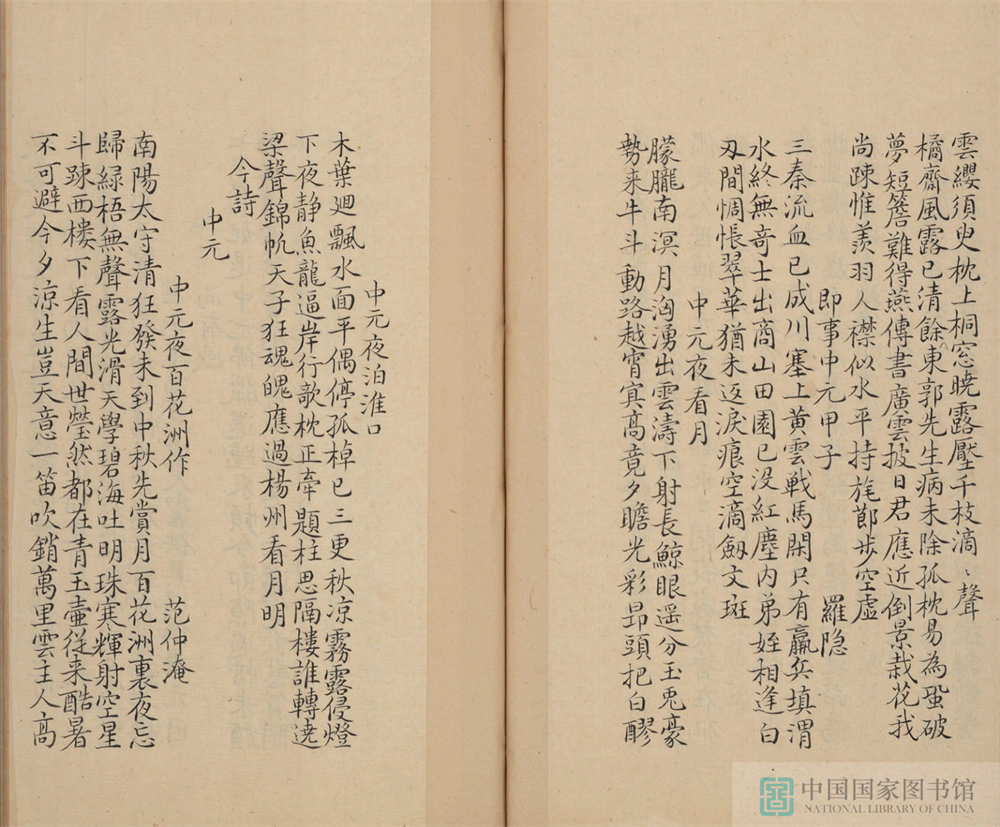 雲纓須臾枕上桐窓曉露壓千枝滴〻聲
橘齋風露已清餘東郭先生病未除孤枕易為蛩破
夢短簷難得燕傳書廣雲披日君應近倒景栽花我
尚踈惟羨羽人襟似水平持旄節步空虛
即事中元甲子 羅隐
三秦流血已成川塞上黄雲戦馬閑只有羸兵填渭
水終無竒士出商山田園已没紅塵内弟姪相逢白
刄間惆悵翠華猶未返淚痕空滴劔文斑
中元夜看月
朦朧南溟月洶湧出雲濤下射長鯨眼遥分玉兎豪
勢来牛斗動路越霄㝠高竟夕瞻光彩昂頭把白醪
中元夜泊淮口
木葉廻飄水面平偶停孤棹已三更秋凉霧露侵燈
下夜静魚龍逼岸行歌枕正牽題柱思隔樓誰轉遶
梁聲錦帆天子狂魂魄應過楊州看月明
今詩
中元
中元夜百花洲作 范仲淹
南陽太守清狂發未到中秋先賞月百花洲裏夜忘
歸緑梧無聲露光滑天學碧海吐明珠寒輝射空星
斗踈西樓下看人間世瑩然都在青玉壷従来酷暑
不可避今夕涼生豈天意一笛吹銷萬里雲主人高
中国国家图书馆
NATIONAL LIBRARY OF CHINA